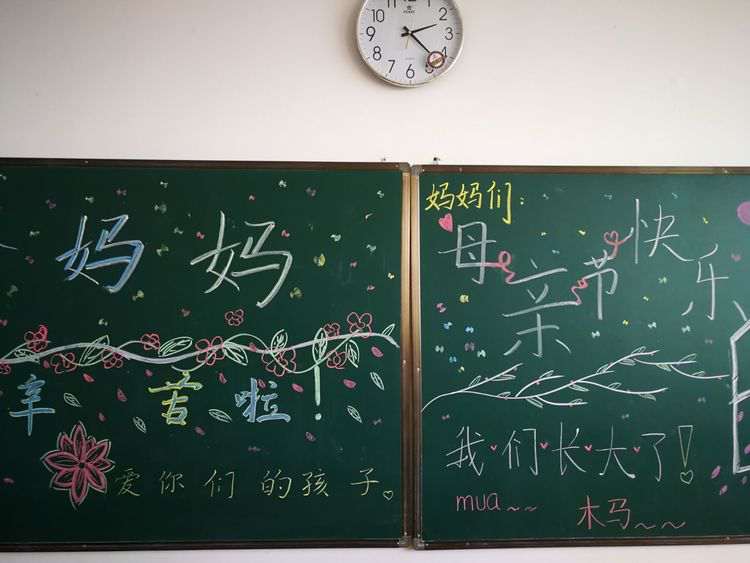 妈妈
辛苦啦！
爱你们的孩子
妈妈们：
母亲节快乐
我们长大了！
mua～～
木马～～
10 11 12 1 2 3 4 5 6 7 8 9